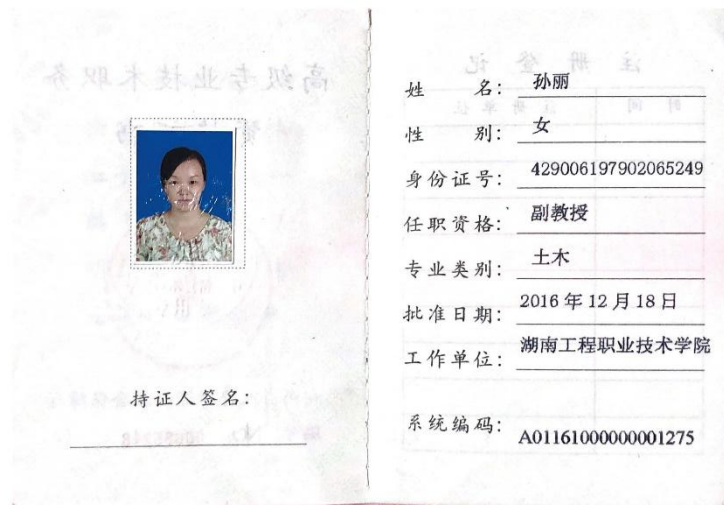 持证人签名:
姓 名: 孙丽
性 别: 女
身份证号: 429006197902065249
任职资格: 副教授
专业类别: 土木
批准日期: 2016年12月18日
工作单位: 湖南工程职业技术学院
系统编码: A01161000000001275
高级专业技术职务
注册登记
时间 注册单位